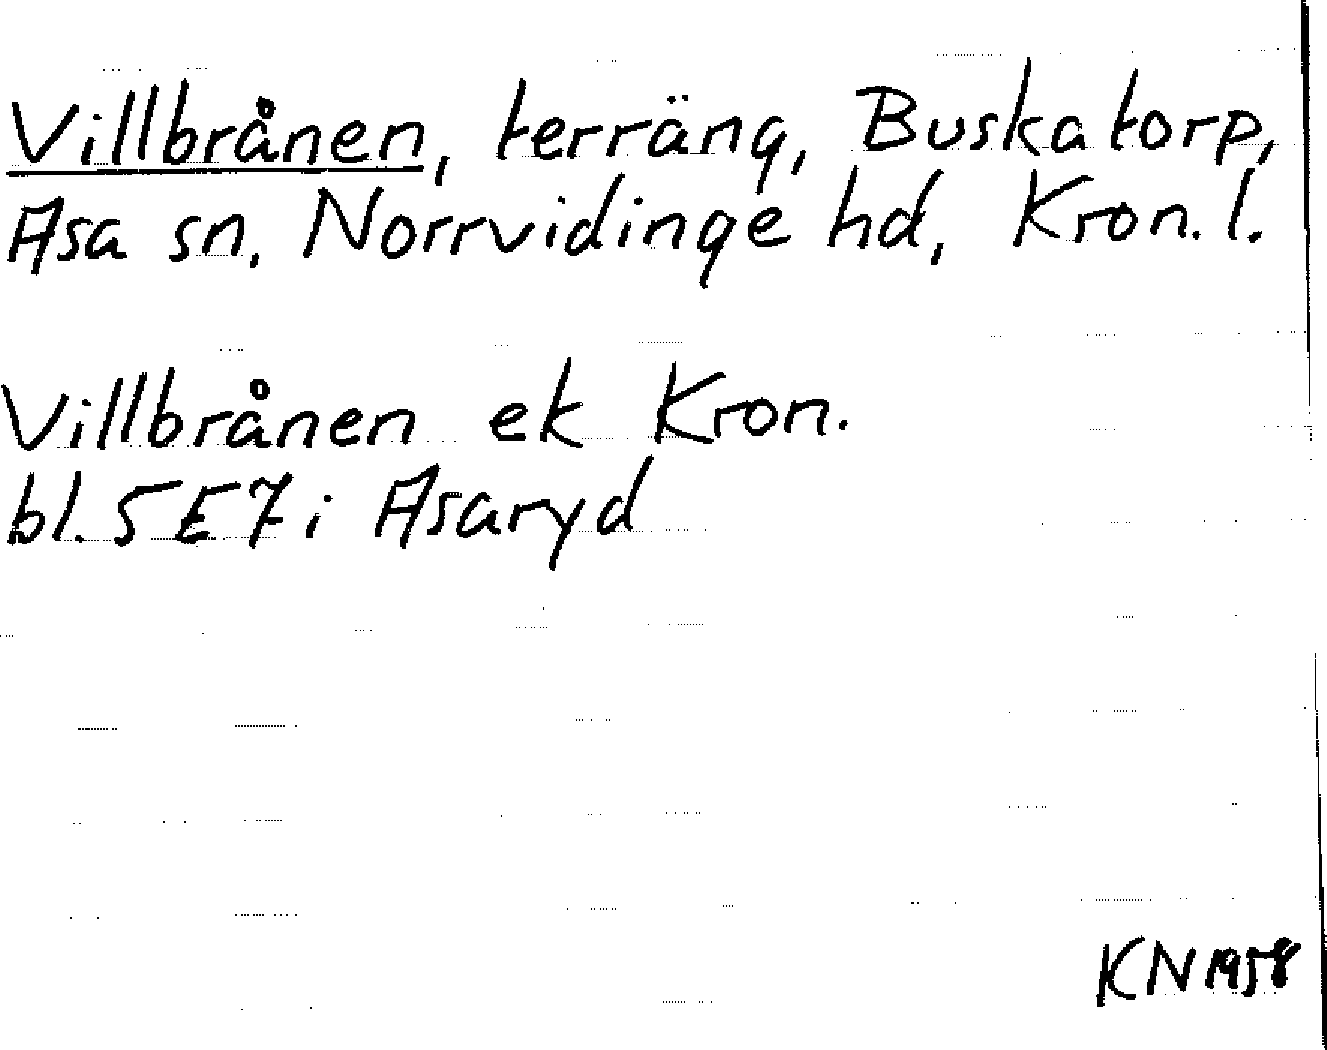 Villbrånen, terräng, Buskatorp,
Asa sn, Norrvidinge hd, Kron. l.
Villbrånen ek Kron.
bl. 5E7i Asaryd
KN 1958